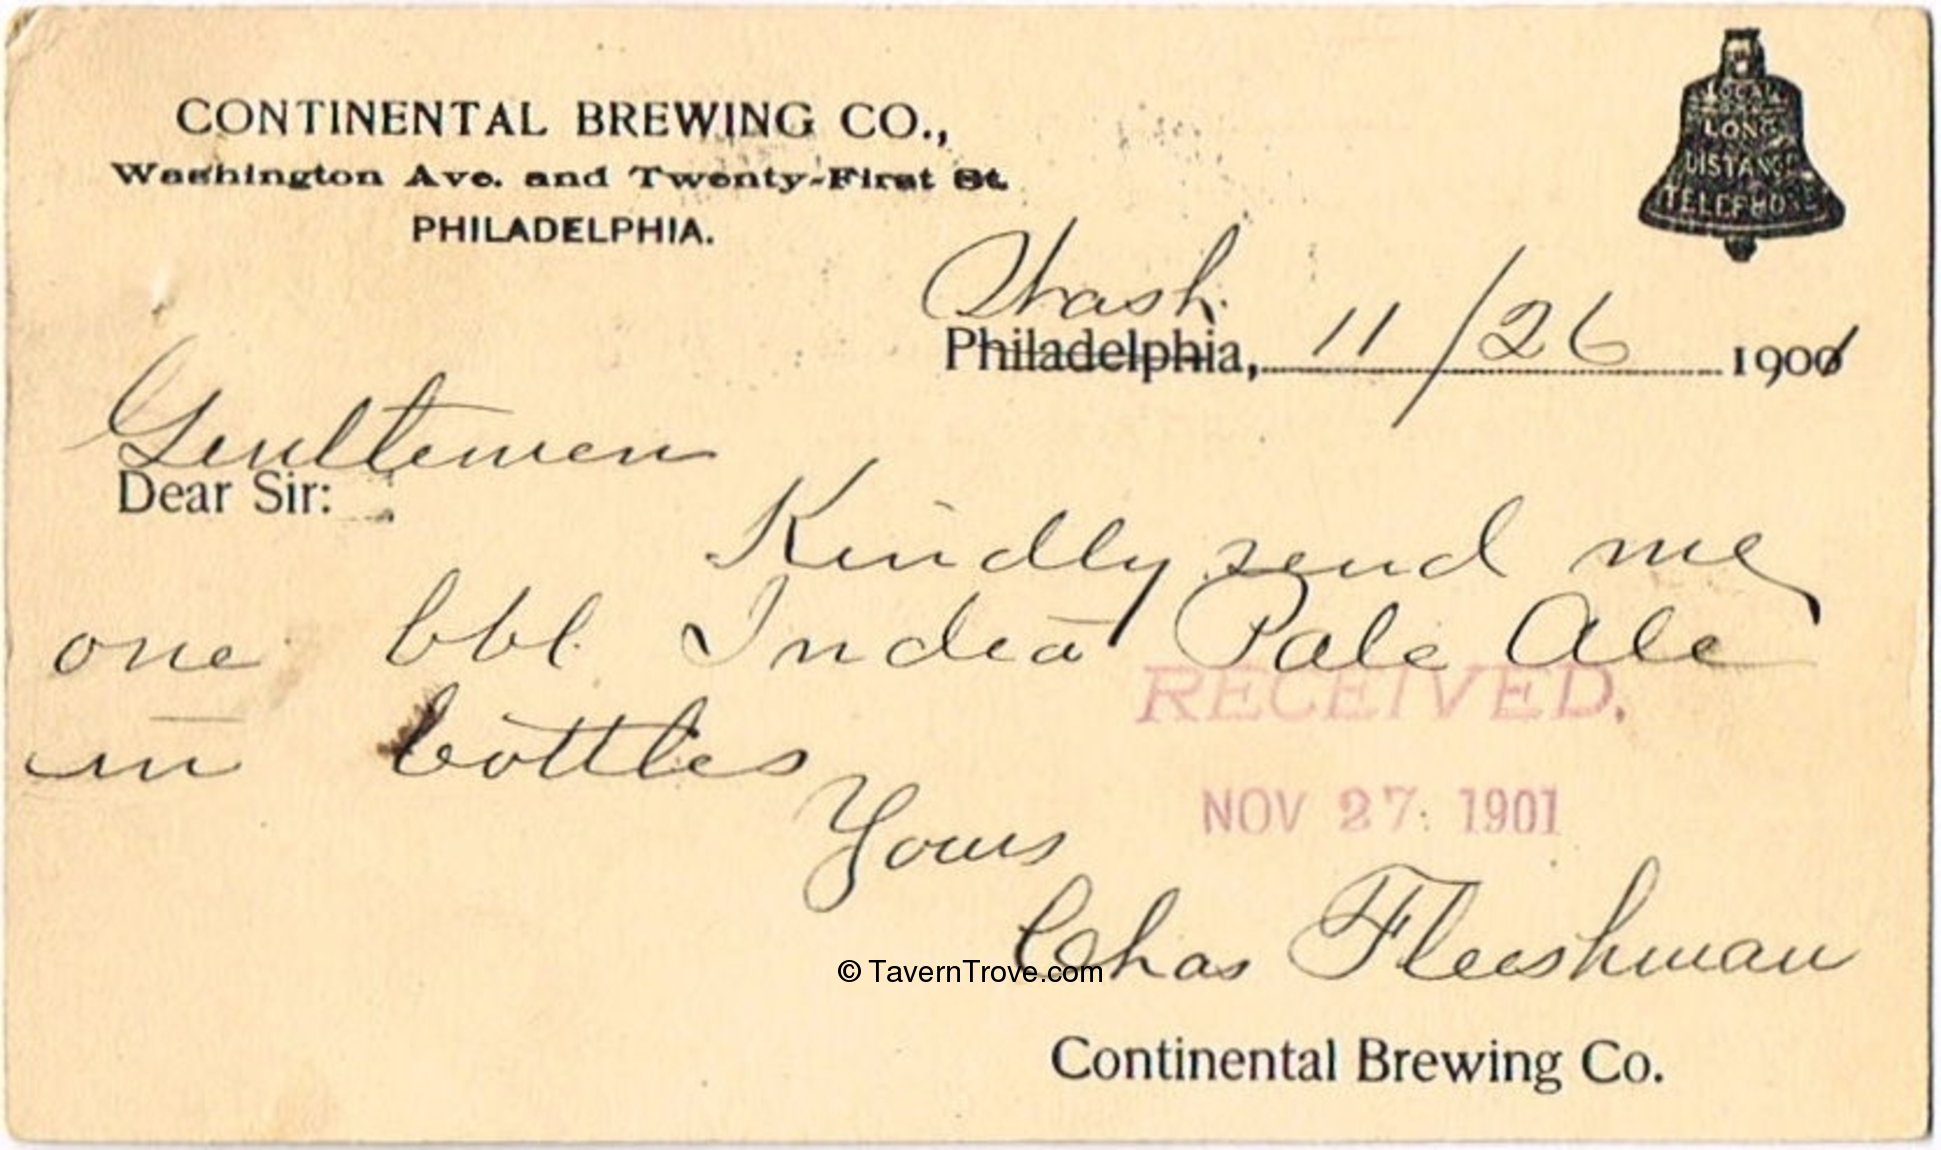 CONTINENTAL BREWING CO.,
Washington Ave. and Twenty-First St.
PHILADELPHIA.
LOCAL
LONG
DISTANCE
TELEPHONE
Wash.
Philadelphia, 11/26 1901
Gentlemen
Dear Sir:
Kindly send me
one bbl. India Pale Ale
in bottles
RECEIVED.
NOV 27 1901
Yours
Chas Fleishman
© TavernTrove.com
Continental Brewing Co.